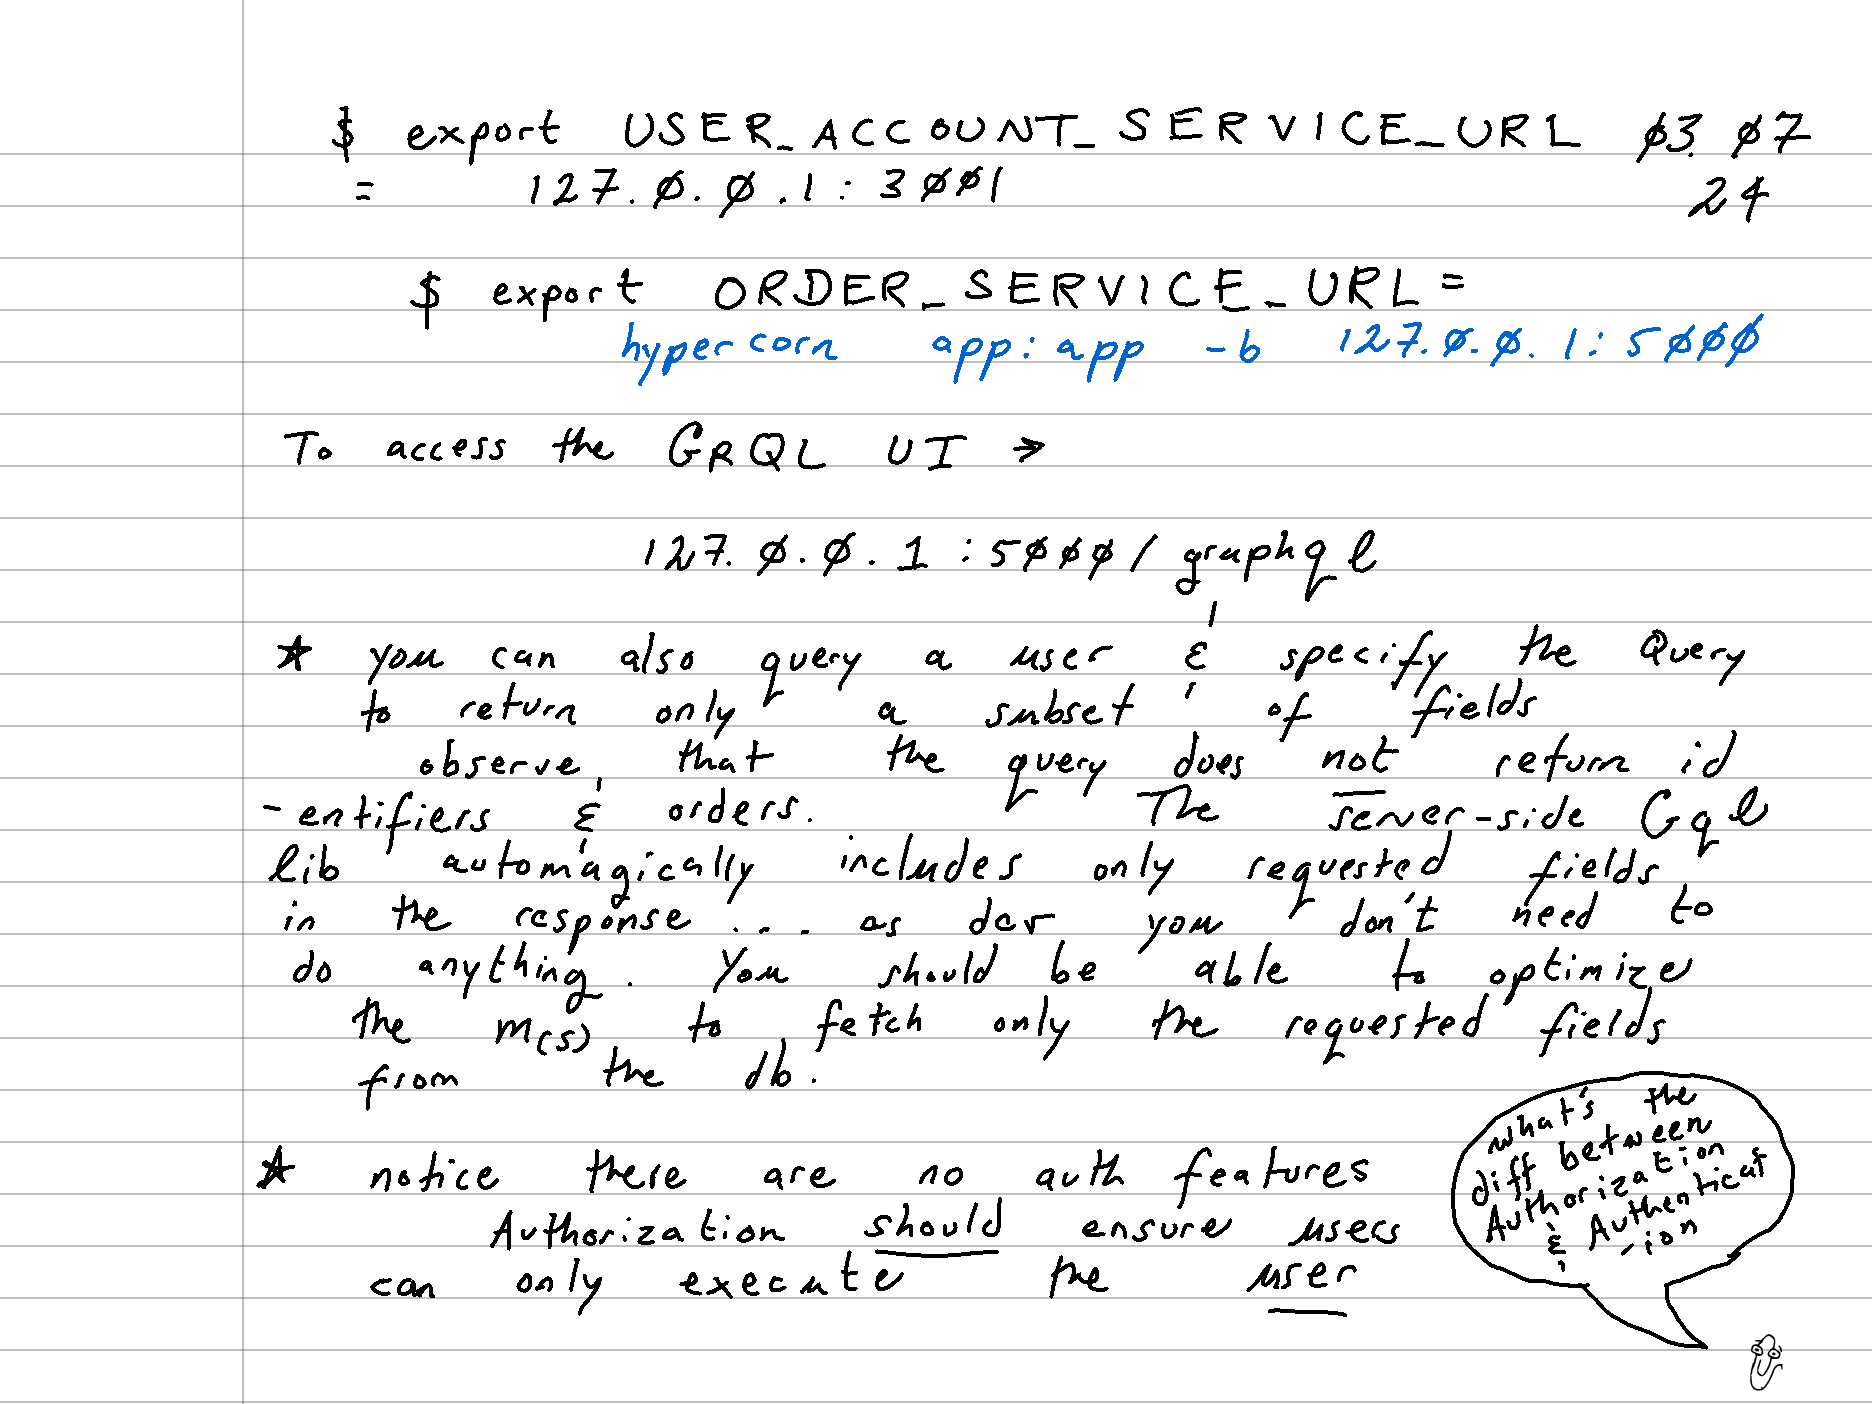 $ export USER_ACCOUNT_SERVICE_URL 03.07
= 127.0.0.1:3001 24
$ export ORDER_SERVICE_URL =
hypercorn app:app -b 127.0.0.1:5000
To access the GRQL UI →
127.0.0.1:5000/graphql
* you can also query a user & specify the Query
to return only a subset of fields
observe, that the query does not return id
-entifiers & orders. The server-side Gql
lib automagically includes only requested fields
in the response .... as dev you don't need to
do anything. You should be able to optimize
the m(s) to fetch only the requested fields
from the db.
* notice there are no auth features
Authorization should ensure users
can only execute the user
what's the
diff between
Authorization
& Authenticat
-ion